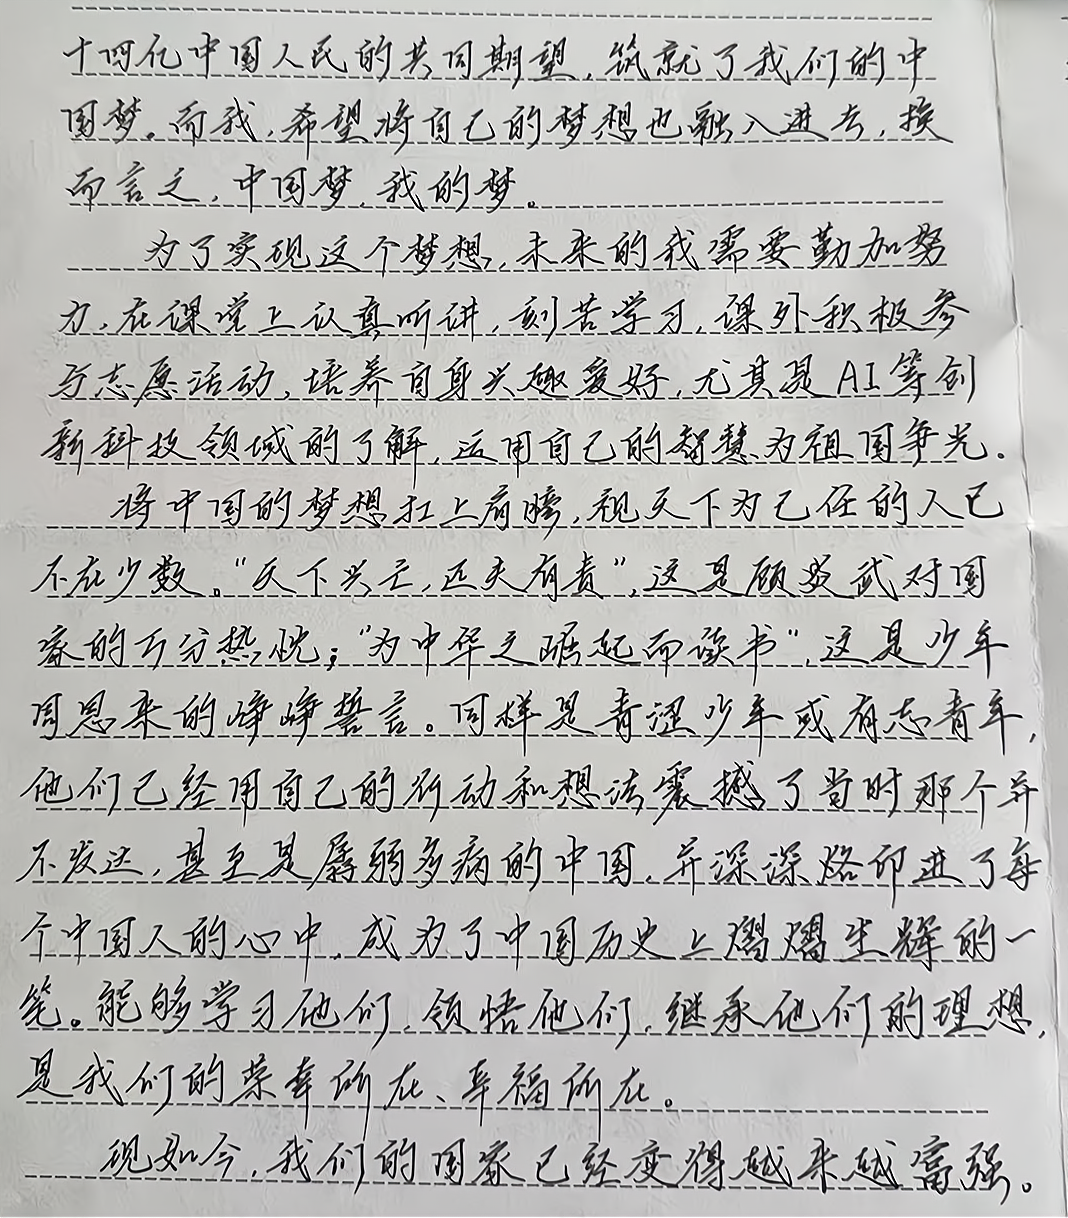 十四亿中国人民的共同期望，筑就了我们的中
国梦。而我，希望将自己的梦想也融入进去，换
而言之，中国梦，我的梦。
为了实现这个梦想，未来的我需要勤加努
力，在课堂上认真听讲，刻苦学习，课外积极参
与志愿活动，培养自身兴趣爱好，尤其是AI等创
新科技领域的了解，运用自己的智慧为祖国争光.
将中国的梦想扛上肩膀，视天下为己任的人已
不在少数。“天下兴亡，匹夫有责”，这是顾炎武对国
家的万分热忱；“为中华之崛起而读书”，这是少年
周恩来的铮铮誓言。同样是青涩少年或有志青年，
他们已经用自己的行动和想法震撼了当时那个并
不发达，甚至是孱弱多病的中国，并深深烙印进了每
个中国人的心中，成为了中国历史上熠熠生辉的一
笔。能够学习他们，领悟他们，继承他们的理想，
是我们的荣幸所在、幸福所在。
现如今，我们的国家已经变得越来越富强。